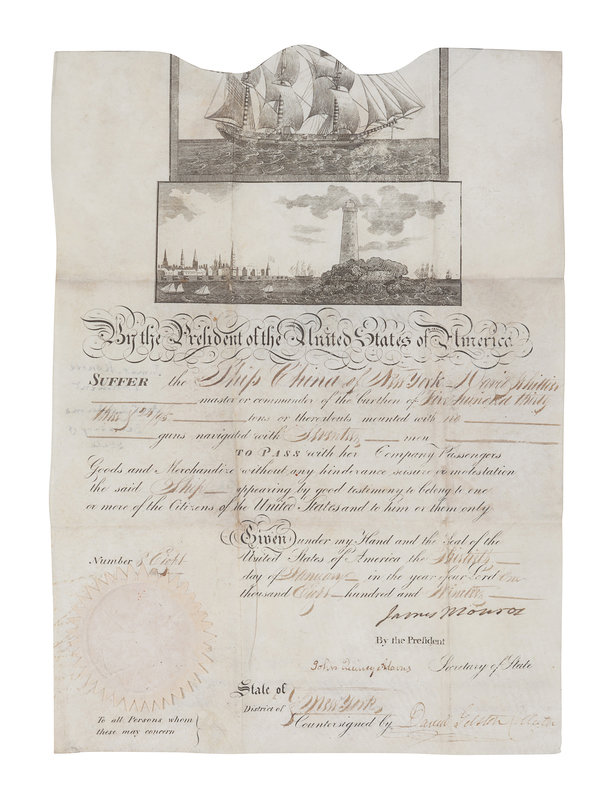 By the President of the United States of America
SUFFER the Ship China of New York David
master or commander of the burthen of Five hundred thirty
three 72/95 tons or thereabouts mounted with no
guns navigated with Seventeen men
TO PASS with her Company Passengers
Goods and Merchandize without any hinderance seisure or molestation
the said Ship appearing by good testimony to belong to one
or more of the Citizens of the United States and to him or them only
Given under my Hand and the Seal of the
United States of America the
day of January in the year of our Lord One
thousand Eight hundred and Nineteen
Number 8 Eight
James Monroe
By the President
John Quincy Adams Secretary of State
State of
District of New York
Countersigned by David Gelston Collector
To all Persons whom
these may concern